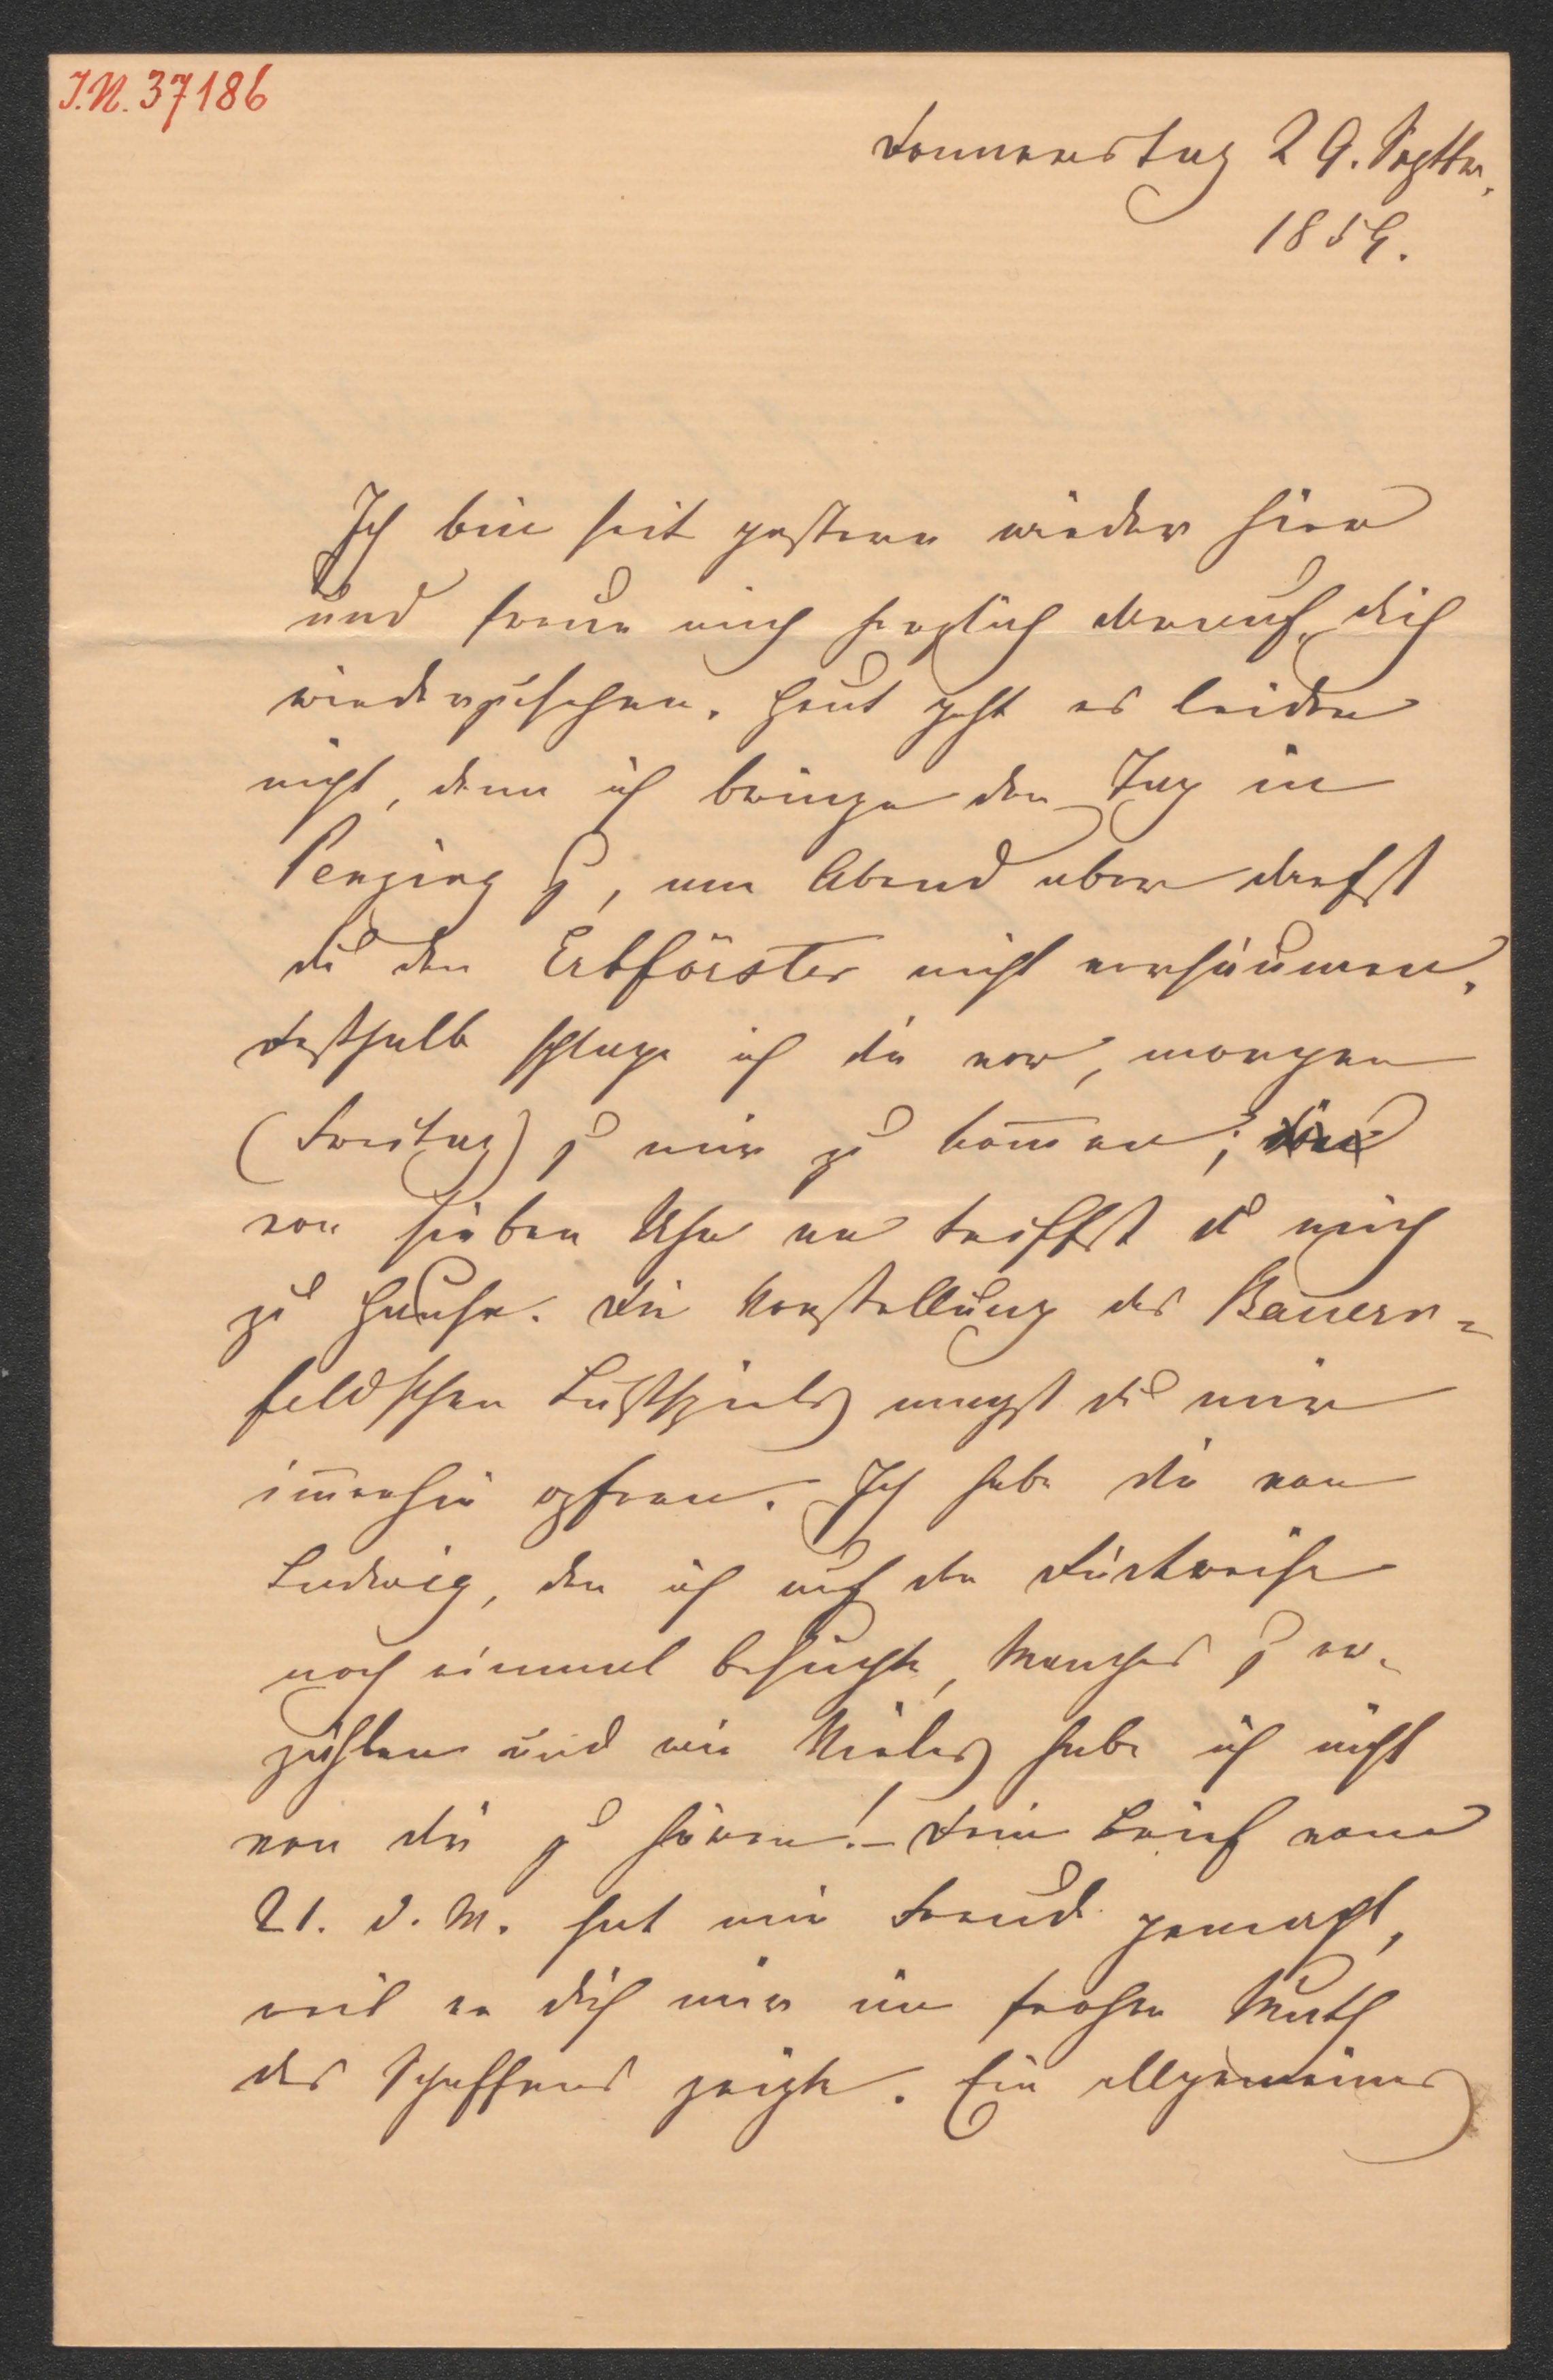 I.N. 37186
Donnerstag 29. Septbr.
1859.
Ich bin seit gestern wieder hier
und freue mich herzlich darauf, dich
wiederzusehen. Heut geht es leider
nicht, denn ich bringe den Tag in
Penzing zu, am Abend aber darfst
du den Erbförster nicht versäumen.
Deßhalb schlage ich dir vor, morgen
(Freitag) zu mir zu kom̄en;
von sieben Uhr an triffst du mich
zu Hause. Die Vorstellung des Bauern=
feldschen Lustspiels magst du mir
im̄erhin opfern. Ich habe dir von
Ludwig, den ich auf der Rückreise
noch einmal besuchte, Manches zu er-
zählen und wie Vieles habe ich nicht
von dir zu hören! – Dein Brief vom
21. d. M. hat mir Freude gemacht,
weil er dich mir im frohen Muth
des Schaffens zeigte. Ein allgemeines